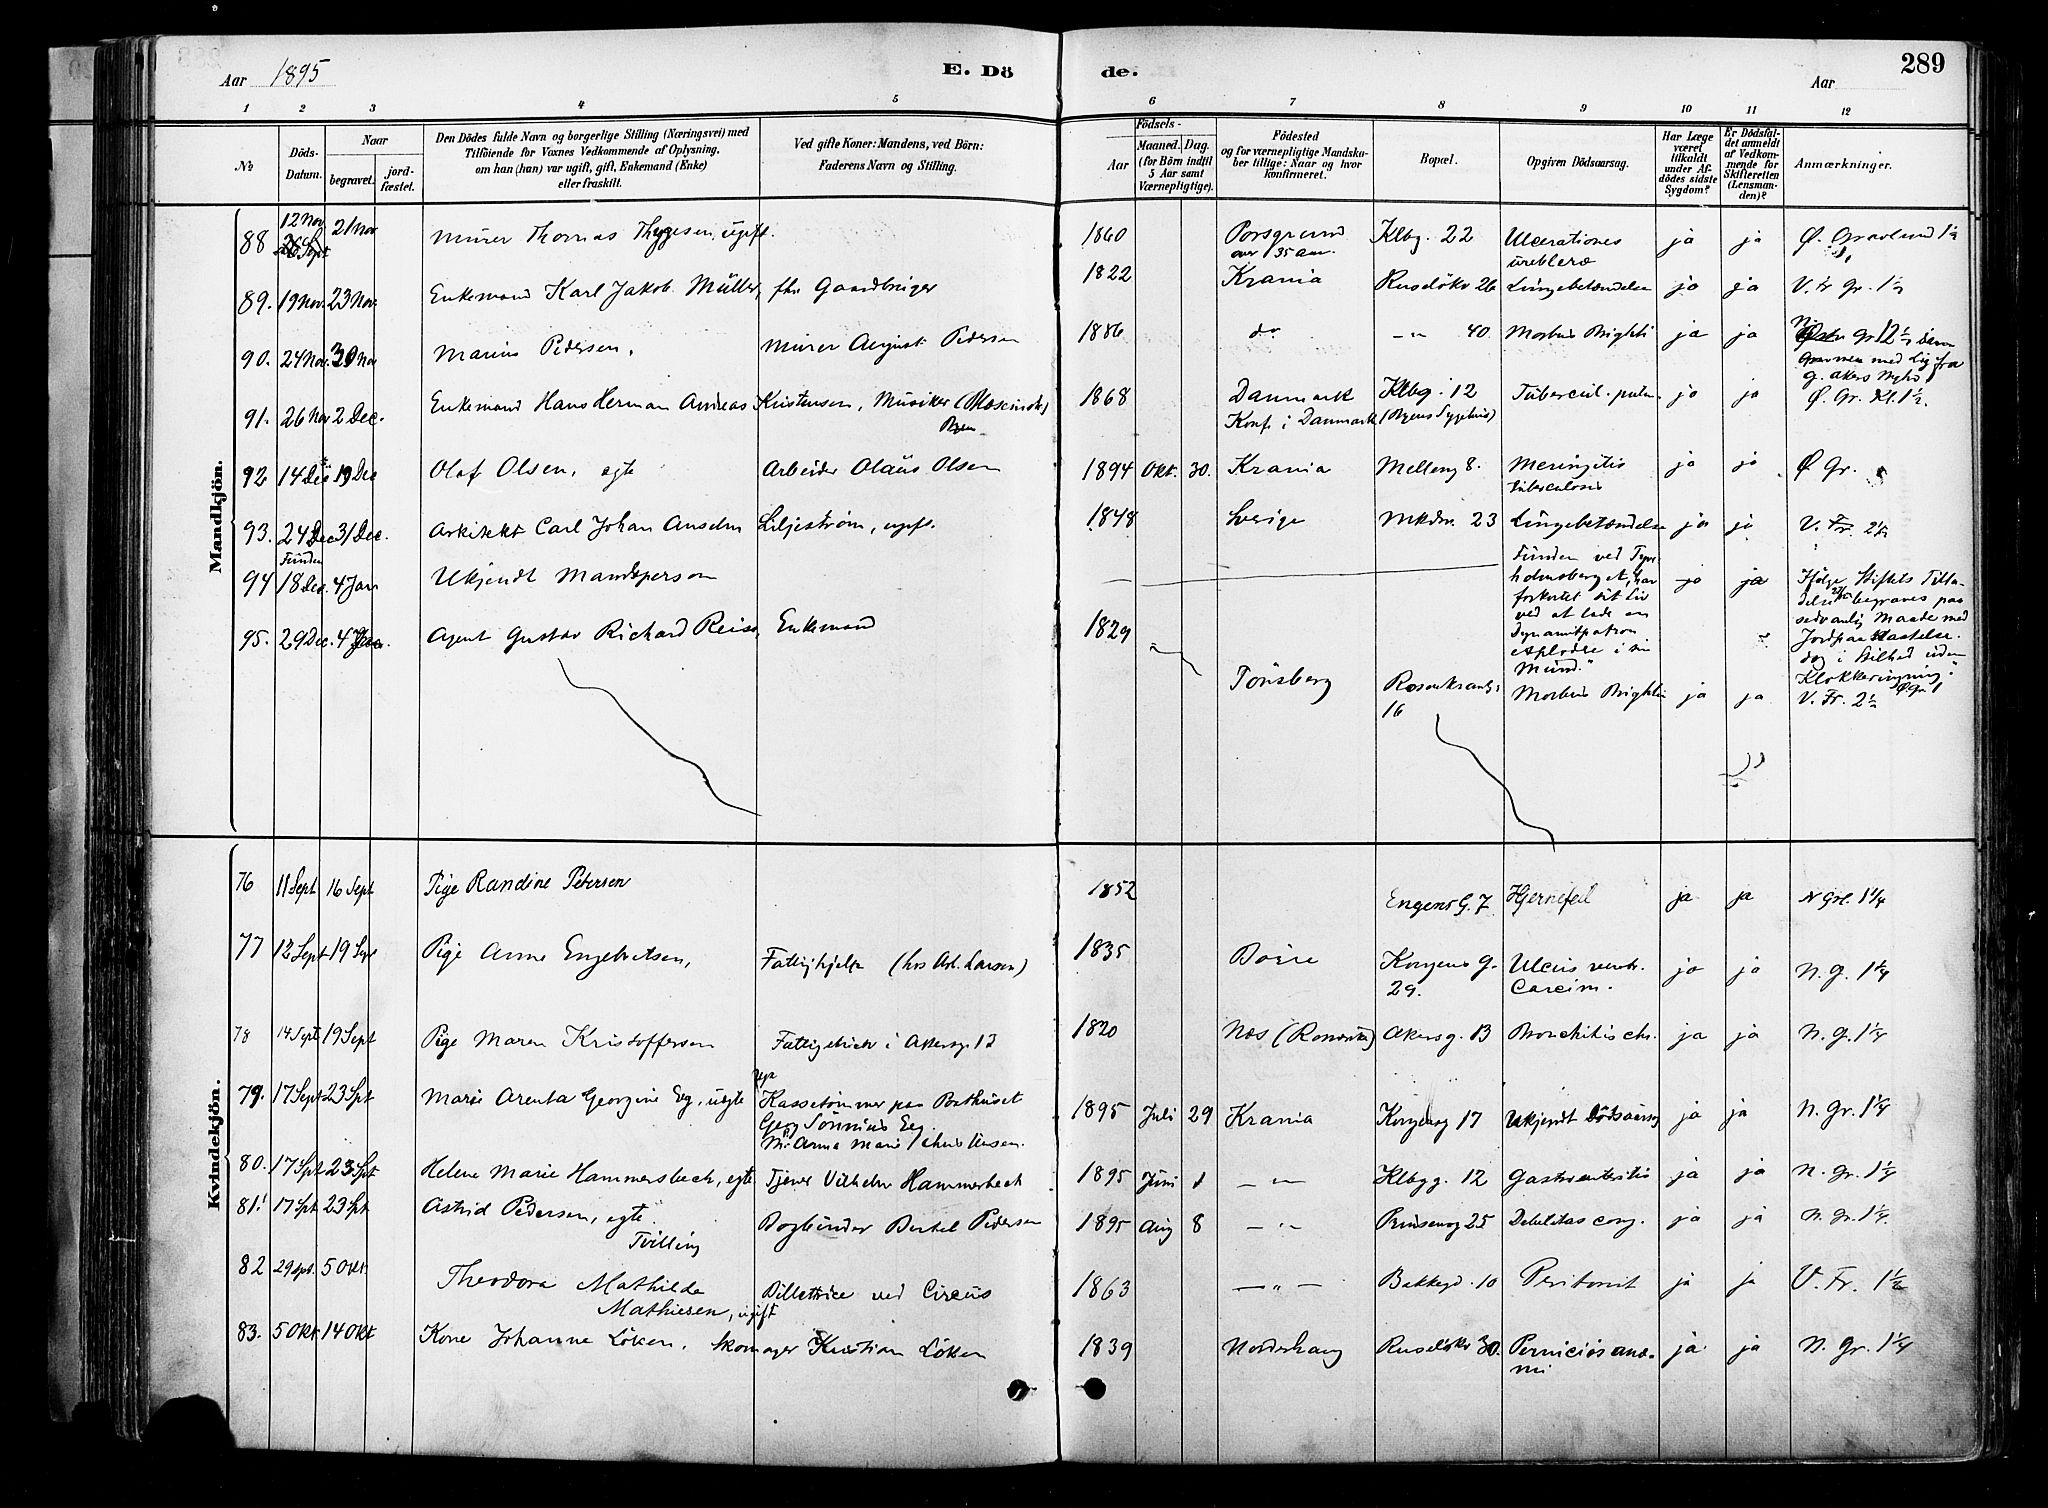 289
Aar 1895
E. Dö
de.
Aar
1 2 3 4 5 6 7 8 9 10 11 12
No
Döds-Datum.
Naar
begravet.
jord-fæstet.
Den Dödes fulde Navn og borgerlige Stilling (Næringsvei) med
Tilföiende for Voxnes Vedkommende af Oplysning,
om han (hun) var ugift, gift, Enkemand (Enke)
eller fraskilt.
Ved gifte Koner: Mandens, ved Börn:
Faderens Navn og Stilling.
Födsels-
Aar
Maaned. Dag.
(for Börn indtil
5 Aar samt
Værnepligtige).
Födested
og for værnepligtige Mandska-
ber tillige: Naar og hvor
konfirmeret.
Bopæl.
Opgiven Dödsaarsag.
Har Læge
været
tilkaldt
under Af-
dödes sidste
Sygdom?
Er Dödsfal-
det anmeldt
af Vedkom-
mende for
Skifteretten
(Lensman-
den)?
Anmærkninger.
Mandkjön.
88 12 Nov 21 Nov Murer Thomas Thygesen, ugift. 1860 Porsgrund over 35 aar. Klbg. 22 Ulcerationes ja ja Ø. Gravlund 1½
89. 19 Nov. 23 Nov Enkemand Karl Jakob Müller, fhv. Gaardbruger 1822 Krania Ruselökv 26 Lungebetændelse ja ja V. Fr Gr. 1½
90. 24 Nov. 30 Nov Marius Pedersen, Murer August Pedersen 1886 do -"- 40. Morbus Brighti ja ja
91. 26 Nov 2 Dec. Enkemand Hans Herman Andreas Kristensen, Musiker 1868 Danmark Konf. i Danmark Klbg. 12 (Byens Sygehus) Tubercul. pulm. ja ja Ø. Gr. Kl. 1½.
92 14 Dec 19 Dec Olaf Olsen, egte Arbeider Olaus Olsen 1894 Okt. 30. Krania Melleng 8. Meningitis tuberculosis ja ja Ø Gr.
93. 24 Dec 31 Dec. Arkitekt Carl Johan Anselm Liljeström, ugift. 1848 Sverige Mkdm. 23 Lungebetændelse ja ja V. Fr. 2½
94 Funden 18 Dec. 4 Jan Ukjendt Mandsperson — Funden ved Tyve-
holmsberget, har
forkortet sit Liv
ved at lade en
Dynamitpatron
explodere i sin
Mund." ja ja Ifölge Stiftets Tilla-
delse begraves paa
sedvanlig Maade med
Jordpaakastelse.
dog i Stilhed uden
Klokkeringning."
95. 29 Dec. 4 Jan. Agent Gustav Richard Reiss, Enkemand 1829 Tönsberg Rosenkrantzg 16 Morbus Brighti ja ja V. Fr. 2½
Kvindekjön.
76 11 Sept 16 Sept Pige Randine Petersen 1852 Engens G. 7 Hjernefeil ja ja N Grl. 1¼
77 12 Sept 19 Sept Pige Anne Engebretsen, Fattighjelp (hos Arb. Larsen) 1835 Borre Kongens G. 29. Ulcus ventr. Carcin. ja ja N. G. 1¼
78 14 Sept 19 Sept Pige Maren Kristoffersen Fattiglem i Akersg 13 1820 Næs (Romerike) Akersg. 13 Bronchitis chr. ja ja N. G. 1¼
79. 17 Sept 23 Spt Marie Arenta Georgine Eg, uegte Kassetömmer paa Posthuset
Georg Sönnius Eeg.
M: Anna Marie Christensen. 1895 Juli 29 Krania Kongensg 17 Ukjendt Dödsaarsag ja ja N. Gr. 1¼
80. 17 Spt 23 Spt Helene Marie Hammersbech, egte Tjener Vilhelm Hammerbech 1895 Juni 1 -"- Klbgg. 12 Gastroenteritis ja ja N. Gr. 1¼
81. 17 Spt 23 Spt Astrid Pedersen, egte. Tvilling Bogbinder Bertel Pedersen 1895 Aug 8 -"- Prinsensg 25 Debilitas cong. ja ja N. Gr. 1¼.
82 29 Spt. 5 Okt. Theodora Mathilde
Mathiesen, ugift Billettrice ved Circus 1863 -"- Bakkegd. 10 Peritonit ja ja V. Fr. 1½
83. 5 Okt. 14 Okt Kone Johanne Löken, Skomager Kristian Löken 1839 Norderhaug Ruselökv 30. Perniciös anæ-
mi ja ja N. Gr. 1¼